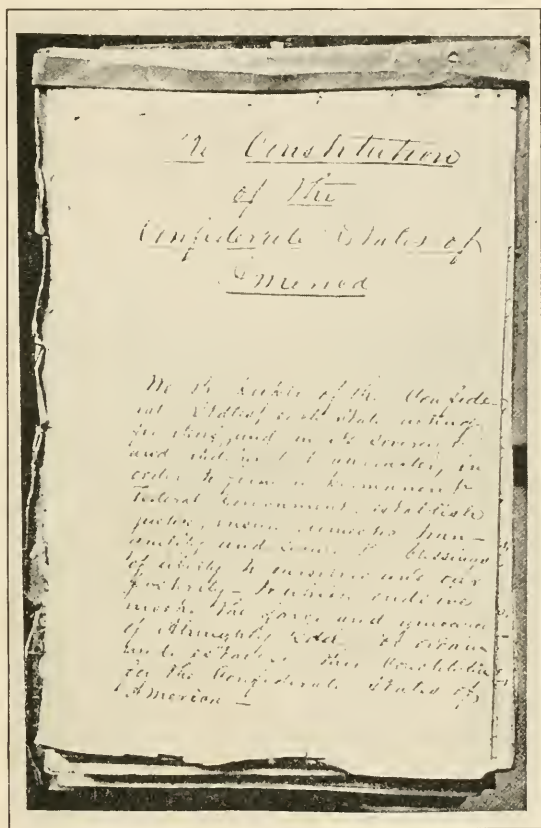 The Constitution
of the
Confederate States of
America
We the people of the Confede-
rate States, each state acting
for itself, and in its sovereign
and independent character, in
order to form a permanent
Federal Government, establish
justice, insure domestic tran-
quility and secure the blessings
of liberty to ourselves and our
posterity — to which end we
invoke the favor and guidance
of Almighty God do ordain
and establish this Constitution
for the Confederate States of
America —